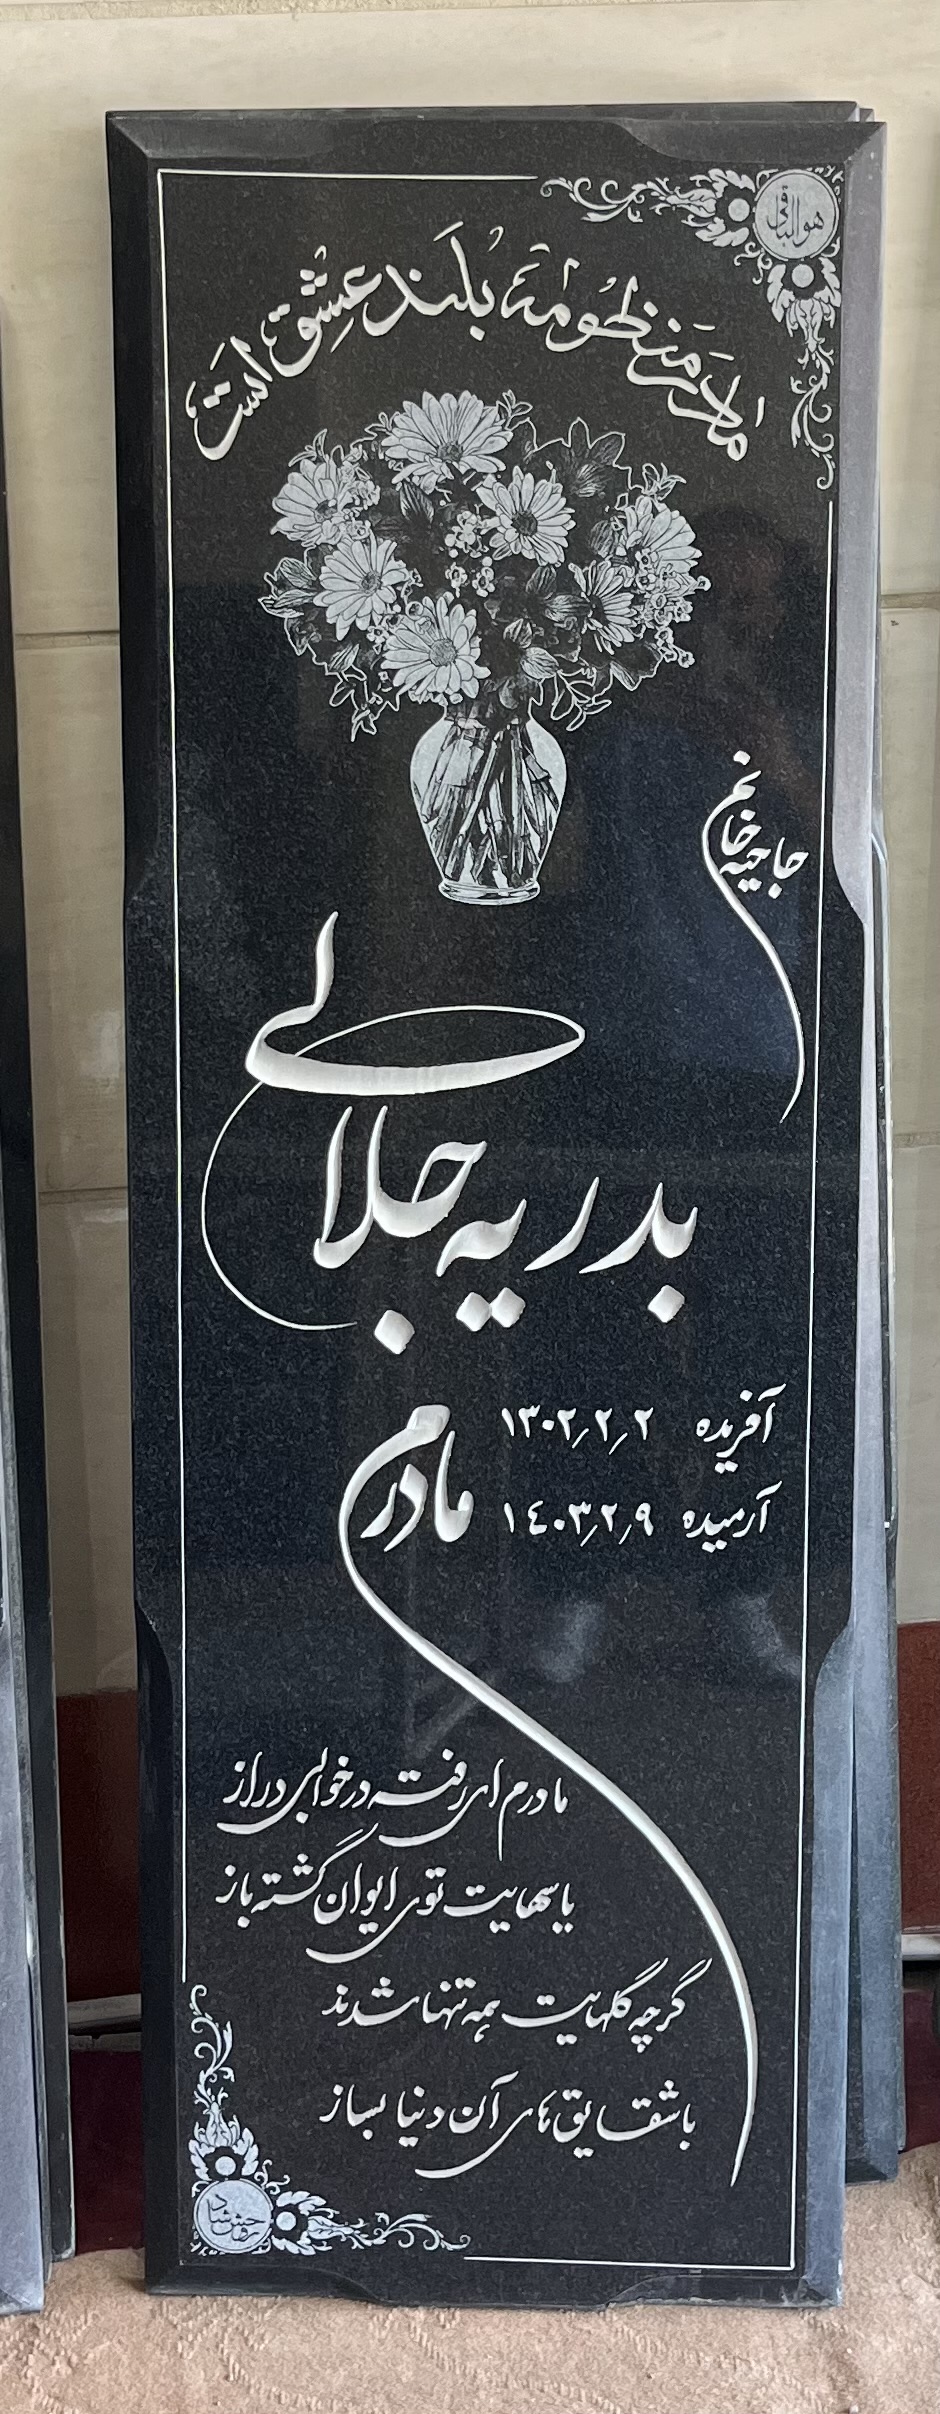 هوالباقی
مادر منظومه بلند عشق است
حاجیه خانم
بدریه جلالی
آفریده ۱۳۰۲٫۲٫۲
آرمیده ۱٤۰۳٫۲٫۹
مادرم
مادرم ای رفته در خوابی دراز
یاسهایت توی ایوان گشته باز
گرچه گلهایت همه تنها شدند
با شقایق های آن دنیا بساز
روحش شاد